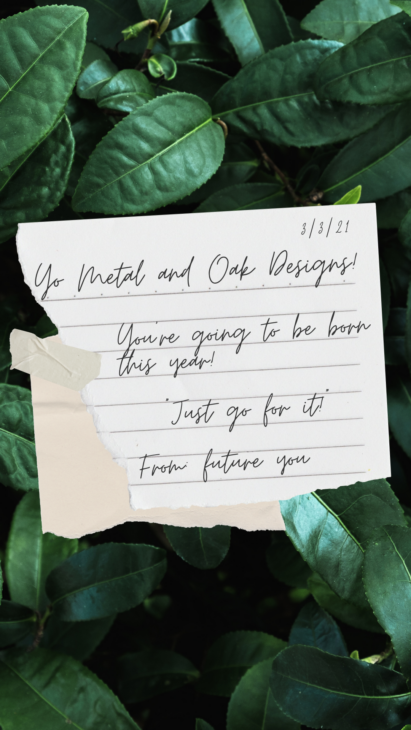 3/3/21
Yo Metal and Oak Designs!
You're going to be born
this year!
"Just go for it!"
From future you